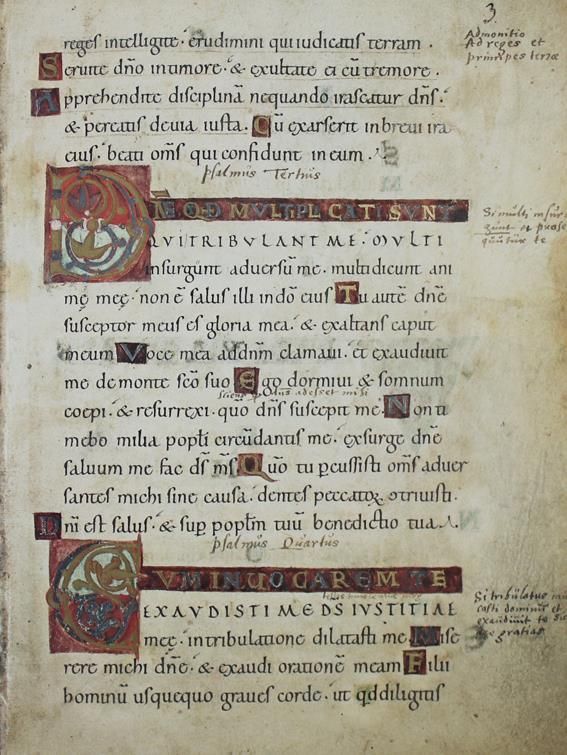 3.
Admonitio
Ad reges et
principes terræ
reges intelligite · erudimini qui iudicatis terram ·
Seruite dño in timore · & exultate ei cū tremore ·
Apprehendite disciplinā nequando irascatur dñs ·
& pereatis deuia iusta · Cū exarserit in breui ira
eius · beati om̄s qui confidunt in eum ·
psalmus Tertius
DÑE QD MVLTIPLICATI SVNT
QVI TRIBVLANT ME · MVLTI
insurgunt aduersū me · multi dicunt ani
me meę · non ē salus illi in dō eius Tu autē dñe
susceptor meus es gloria mea · & exaltans caput
meum Voce mea ad dnm clamaui · et exaudiuit
me de monte scō suo Ego dormiui & somnum
coepi · & resurrexi · quō dñs suscepit me · Non ti
mebo milia popłi circūdantis me · exsurge dñe
saluum me fac ds ms · Quō tu pcussisti om̄s aduer
santes michi sine causa · dentes peccatoꝝ otriuisti ·
Dni est salus · & sup popłm tuū benedictio tua ·
psalmus Quartus
CVM INVOCAREM TE
EXAVDISTI ME DS IVSTITIAE
meę · in tribulatione dilatasti me Mise
rere michi dñe · & exaudi orationē meam Filii
hominū usquequo graues corde · ut qd diligitis
Si multi insur
gunt et
te
Si tribulatus
dominus et
exaudiuit te
gratias